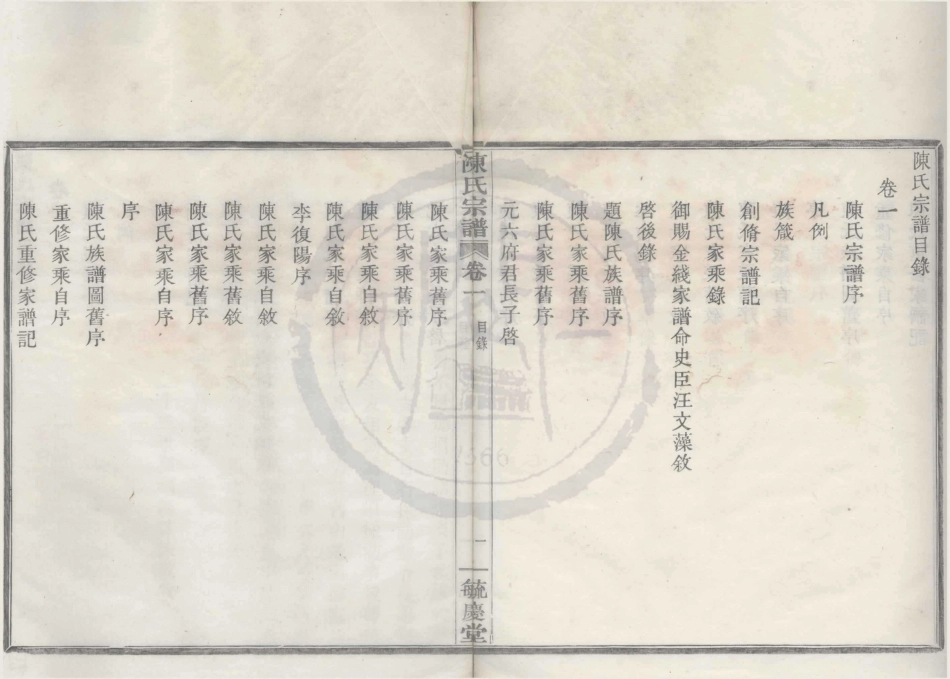 陳氏宗譜目錄
卷一
陳氏宗譜序
凡例
族箴
創脩宗譜記
陳氏家乘錄
御賜金綫家譜命史臣汪文藻敘
啓後錄
題陳氏族譜序
陳氏家乘舊序
陳氏家乘舊序
元六府君長子啓
陳氏宗譜
卷一
目錄
一
毓慶堂
陳氏家乘舊序
陳氏家乘舊序
陳氏家乘自敘
陳氏家乘自敘
李復陽序
陳氏家乘自敘
陳氏家乘舊敘
陳氏家乘舊序
陳氏家乘自序
序
陳氏族譜圖舊序
重修家乘自序
陳氏重修家譜記